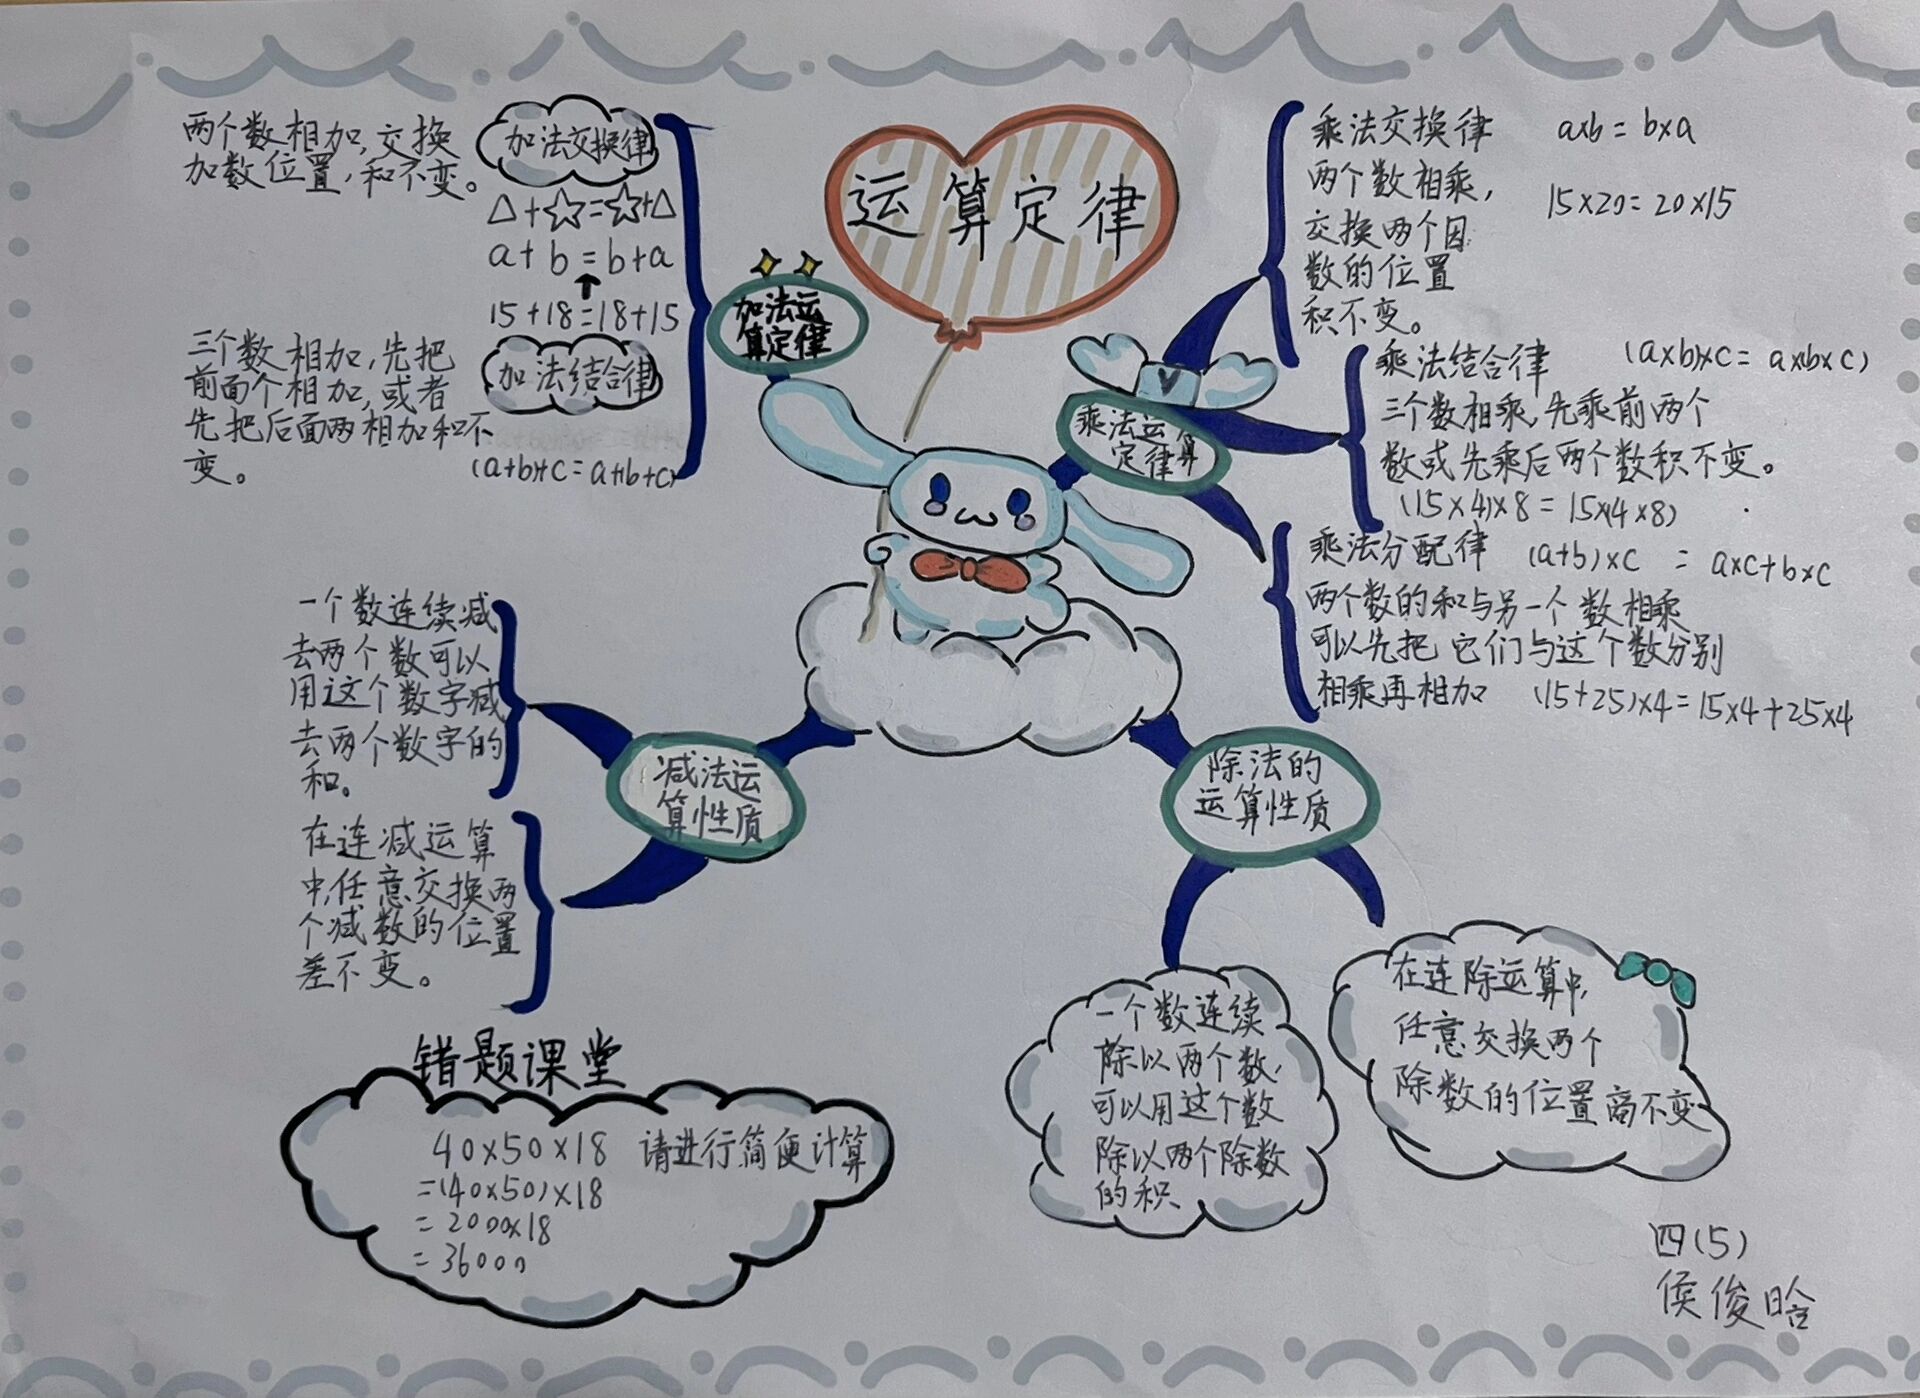 运算定律
加法运
算定律
加法交换律
两个数相加,交换
加数位置,和不变。
△+☆=☆+△
a+b=b+a
15+18=18+15
加法结合律
三个数相加,先把
前面个相加,或者
先把后面两相加和不
变。
(a+b)+c=a+(b+c)
乘法运算
定律
乘法交换律 a×b=b×a
两个数相乘,
15×20=20×15
交换两个因
数的位置
积不变。
乘法结合律 (a×b)×c=a×(b×c)
三个数相乘,先乘前两个
数或先乘后两个数积不变。
(15×4)×8=15×(4×8)
乘法分配律 (a+b)×c =a×c+b×c
两个数的和与另一个数相乘
可以先把它们与这个数分别
相乘再相加 (15+25)×4=15×4+25×4
减法运
算性质
一个数连续减
去两个数可以
用这个数字减
去两个数字的
和。
在连减运算
中,任意交换两
个减数的位置
差不变。
除法的
运算性质
一个数连续
除以两个数,
可以用这个数
除以两个除数
的积
在连除运算中,
任意交换两个
除数的位置商不变
错题课堂
40×50×18 请进行简便计算
=(40×50)×18
=2000×18
=36000
四(5)
侯俊晗